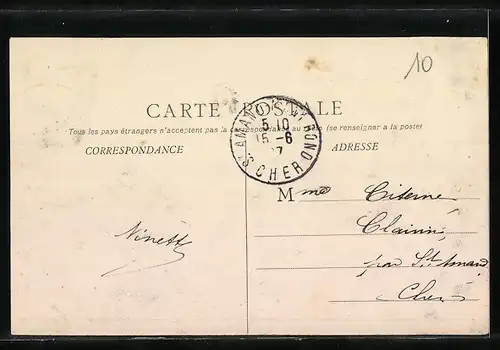 10
CARTE POSTALE
Tous les pays étrangers n'acceptent pas la correspondance au (se renseigner à la poste)
CORRESPONDANCE
ADRESSE
ST AMAND MONT ROND
5 10
15 -6
07
CHER
Mme Citerne
Ninette
par St Amand
Cher